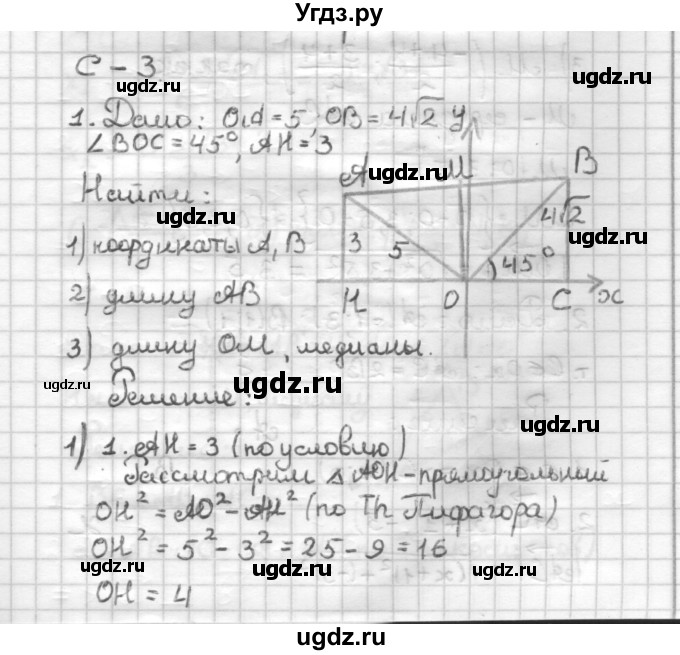 Угдз.ру
С – 3
1. Дано: OA = 5, OB = 4√2
∠BOC = 45°, AH = 3
Найти:
1) координаты A, B
2) длину AB
3) длину OM, медианы.
Решение:
y
A M B
3 5 45° 4√2
H O C x
1) 1. AH = 3 (по условию)
Рассмотрим △ AOH – прямоугольный
OH² = AO² – AH² (по Th Пифагора)
OH² = 5² – 3² = 25 – 9 = 16
OH = 4
ugdz.ru
ugdz.ru
ugdz.ru
ugdz.ru
ugdz.ru
ugdz.ru
ugdz.ru
ugdz.ru
ugdz.ru
ugdz.ru
ugdz.ru
ugdz.ru
ugdz.ru